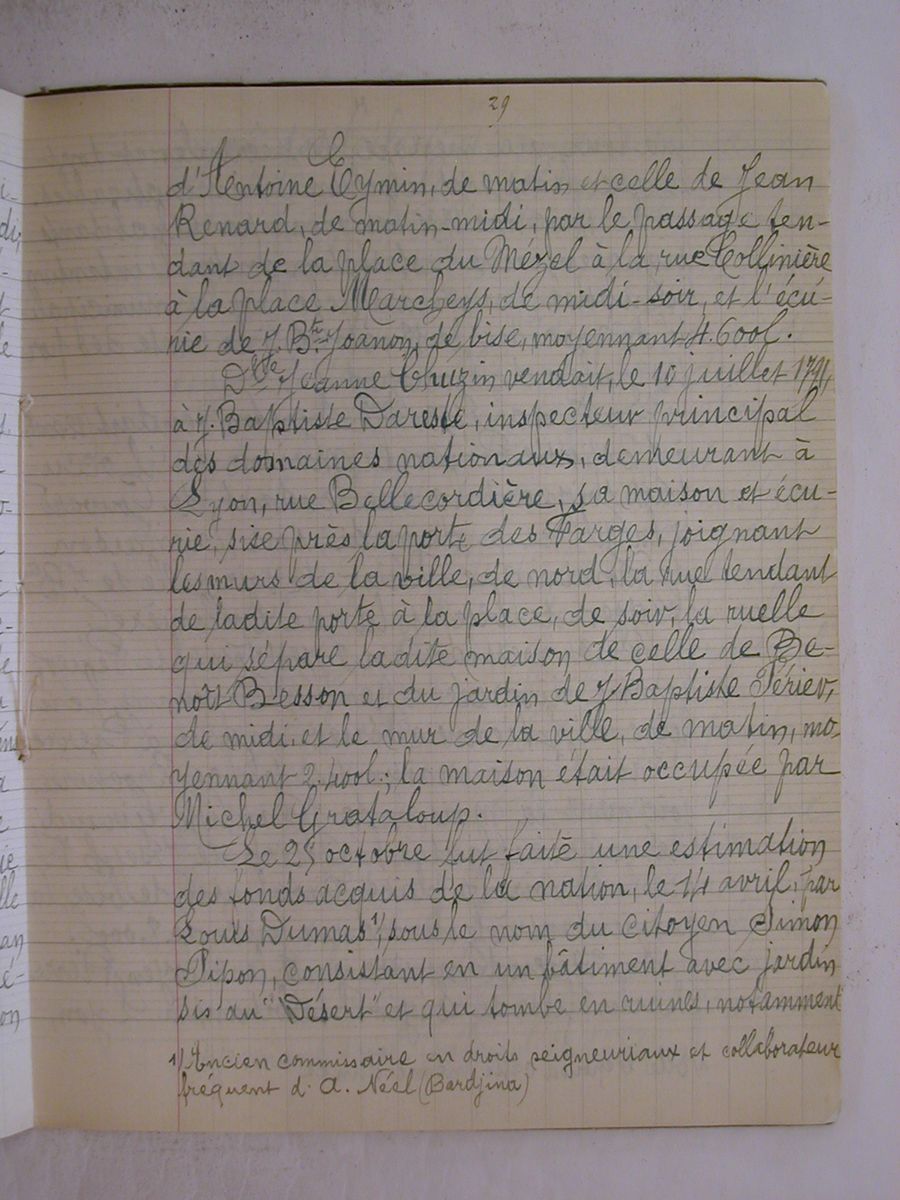 29
d'Antoine Eymin, de matin et celle de Jean
Renard, de matin-midi, par le passage ten-
dant de la place du Mézel à la rue Collinière
à la place Marcheys, de midi-soir, et l'écu-
rie de J. Bte Joanon, de bise, moyennant 4.600l.
Dlle Jeanne Chuzin vendait, le 10 juillet 1791,
à J. Baptiste Dareste, inspecteur principal
des domaines nationaux, demeurant à
Lyon, rue Bellecordière, sa maison et écu-
rie, sise près la porte des Farges, joignant
les murs de la ville, de nord, la rue tendant
de ladite porte à la place, de soir, la ruelle
qui sépare ladite maison de celle de Be-
noît Besson et du jardin de J. Baptiste Périer,
de midi, et le mur de la ville, de matin, mo-
yennant 2.400l.; la maison était occupée par
Michel Grataloup.
Le 25 octobre fut faite une estimation
des fonds acquis de la nation, le 14 avril, par
Louis Dumas 1), sous le nom du citoyen Simon
Pipon, consistant en un bâtiment avec jardin
sis au "Désert" et qui tombe en ruines, notamment
1) Ancien commissaire en droits seigneuriaux et collaborateur
fréquent d'A. Néel (Bardjina)